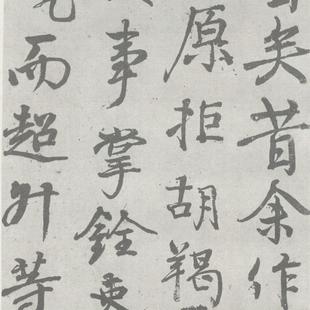 矣昔余作
原拒胡羯
事掌銓吏
而超升等